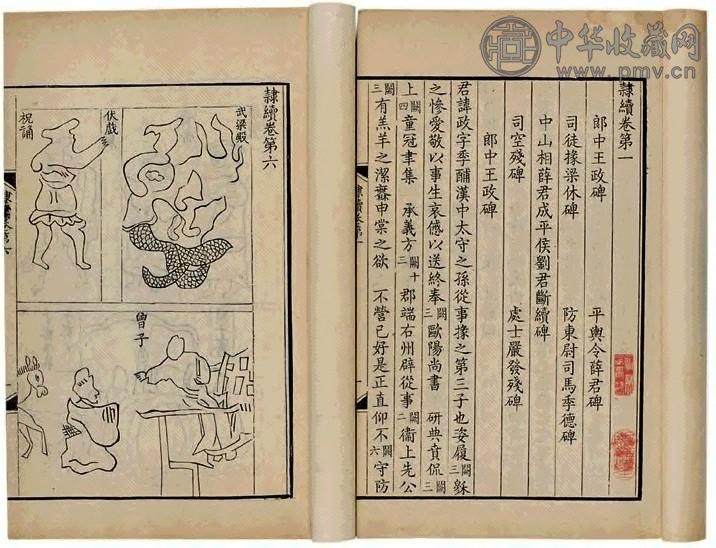 中华收藏网
www.pmv.cn
隸續卷第一
郎中王政碑 平輿令薛君碑
司徒掾梁休碑 防東尉司馬季德碑
中山相薛君成平侯劉君斷續碑
司空殘碑 處士嚴發殘碑
郎中王政碑
君諱政字季酺漢中太守之孫從事掾之第三子也姿履闕三
之慘愛敬以事生哀慽以送終奉闕三歐陽尚書 研典賁侃闕三
上闕四童冠聿集 承義方闕三十郡端右州辟從事闕二衞上先公
闕三有羔羊之潔 申棠之欲 不營己好是正直仰不闕六守防
隸續卷第六
武梁殿
伏戲
祝誦
曾子